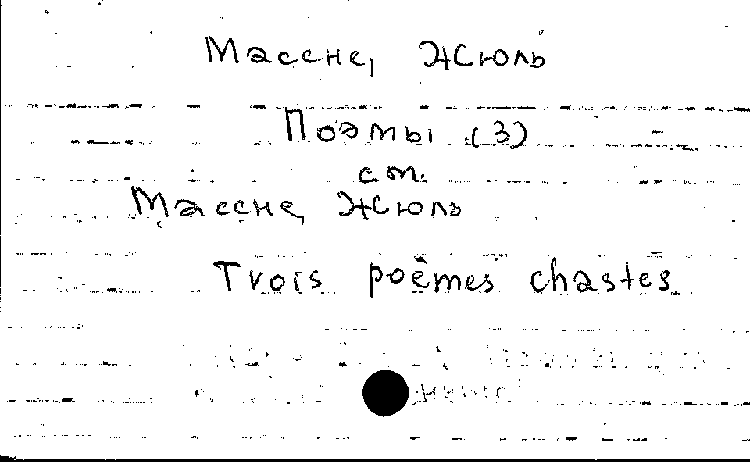 Массне, Жюль
Поэмы (3)
см.
Массне, Жюль
Trois poëmes chastes